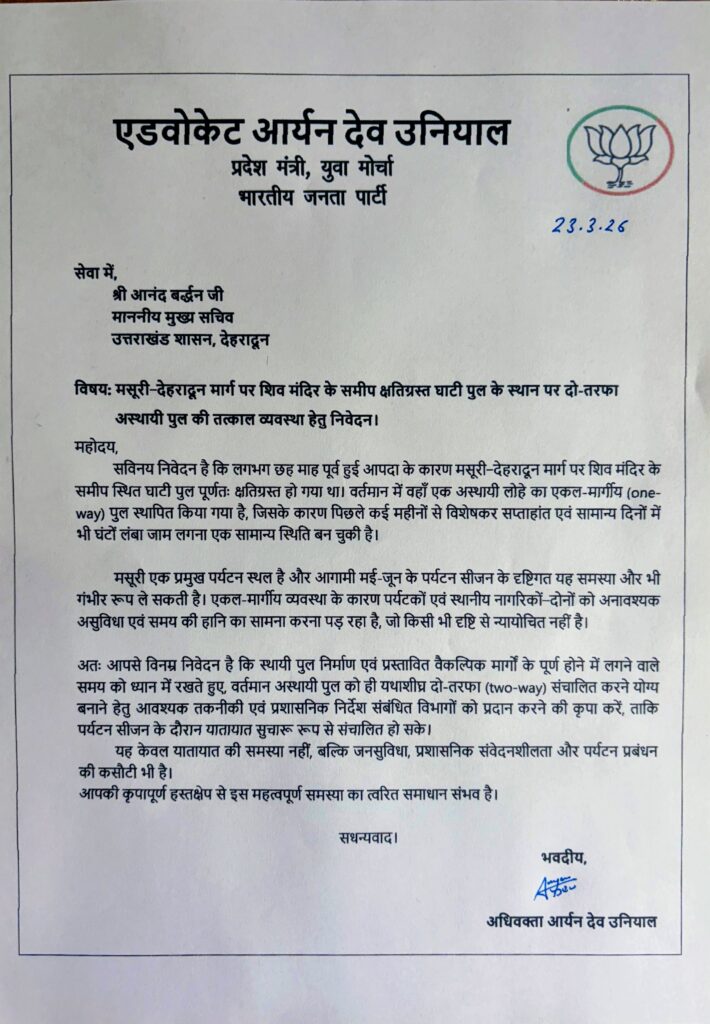 एडवोकेट आर्यन देव उनियाल
प्रदेश मंत्री, युवा मोर्चा
भारतीय जनता पार्टी
23.3.26
सेवा में,
श्री आनंद बर्द्धन जी
माननीय मुख्य सचिव
उत्तराखंड शासन, देहरादून
विषय: मसूरी-देहरादून मार्ग पर शिव मंदिर के समीप क्षतिग्रस्त घाटी पुल के स्थान पर दो-तरफा
अस्थायी पुल की तत्काल व्यवस्था हेतु निवेदन।
महोदय,
सविनय निवेदन है कि लगभग छह माह पूर्व हुई आपदा के कारण मसूरी-देहरादून मार्ग पर शिव मंदिर के
समीप स्थित घाटी पुल पूर्णतः क्षतिग्रस्त हो गया था। वर्तमान में वहाँ एक अस्थायी लोहे का एकल-मार्गीय (one-
way) पुल स्थापित किया गया है, जिसके कारण पिछले कई महीनों से विशेषकर सप्ताहांत एवं सामान्य दिनों में
भी घंटों लंबा जाम लगना एक सामान्य स्थिति बन चुकी है।
मसूरी एक प्रमुख पर्यटन स्थल है और आगामी मई-जून के पर्यटन सीजन के दृष्टिगत यह समस्या और भी
गंभीर रूप ले सकती है। एकल-मार्गीय व्यवस्था के कारण पर्यटकों एवं स्थानीय नागरिकों-दोनों को अनावश्यक
असुविधा एवं समय की हानि का सामना करना पड़ रहा है, जो किसी भी दृष्टि से न्यायोचित नहीं है।
अतः आपसे विनम्र निवेदन है कि स्थायी पुल निर्माण एवं प्रस्तावित वैकल्पिक मार्गों के पूर्ण होने में लगने वाले
समय को ध्यान में रखते हुए, वर्तमान अस्थायी पुल को ही यथाशीघ्र दो-तरफा (two-way) संचालित करने योग्य
बनाने हेतु आवश्यक तकनीकी एवं प्रशासनिक निर्देश संबंधित विभागों को प्रदान करने की कृपा करें, ताकि
पर्यटन सीजन के दौरान यातायात सुचारू रूप से संचालित हो सके।
यह केवल यातायात की समस्या नहीं, बल्कि जनसुविधा, प्रशासनिक संवेदनशीलता और पर्यटन प्रबंधन
की कसौटी भी है।
आपकी कृपापूर्ण हस्तक्षेप से इस महत्वपूर्ण समस्या का त्वरित समाधान संभव है।
सधन्यवाद।
भवदीय,
अधिवक्ता आर्यन देव उनियाल